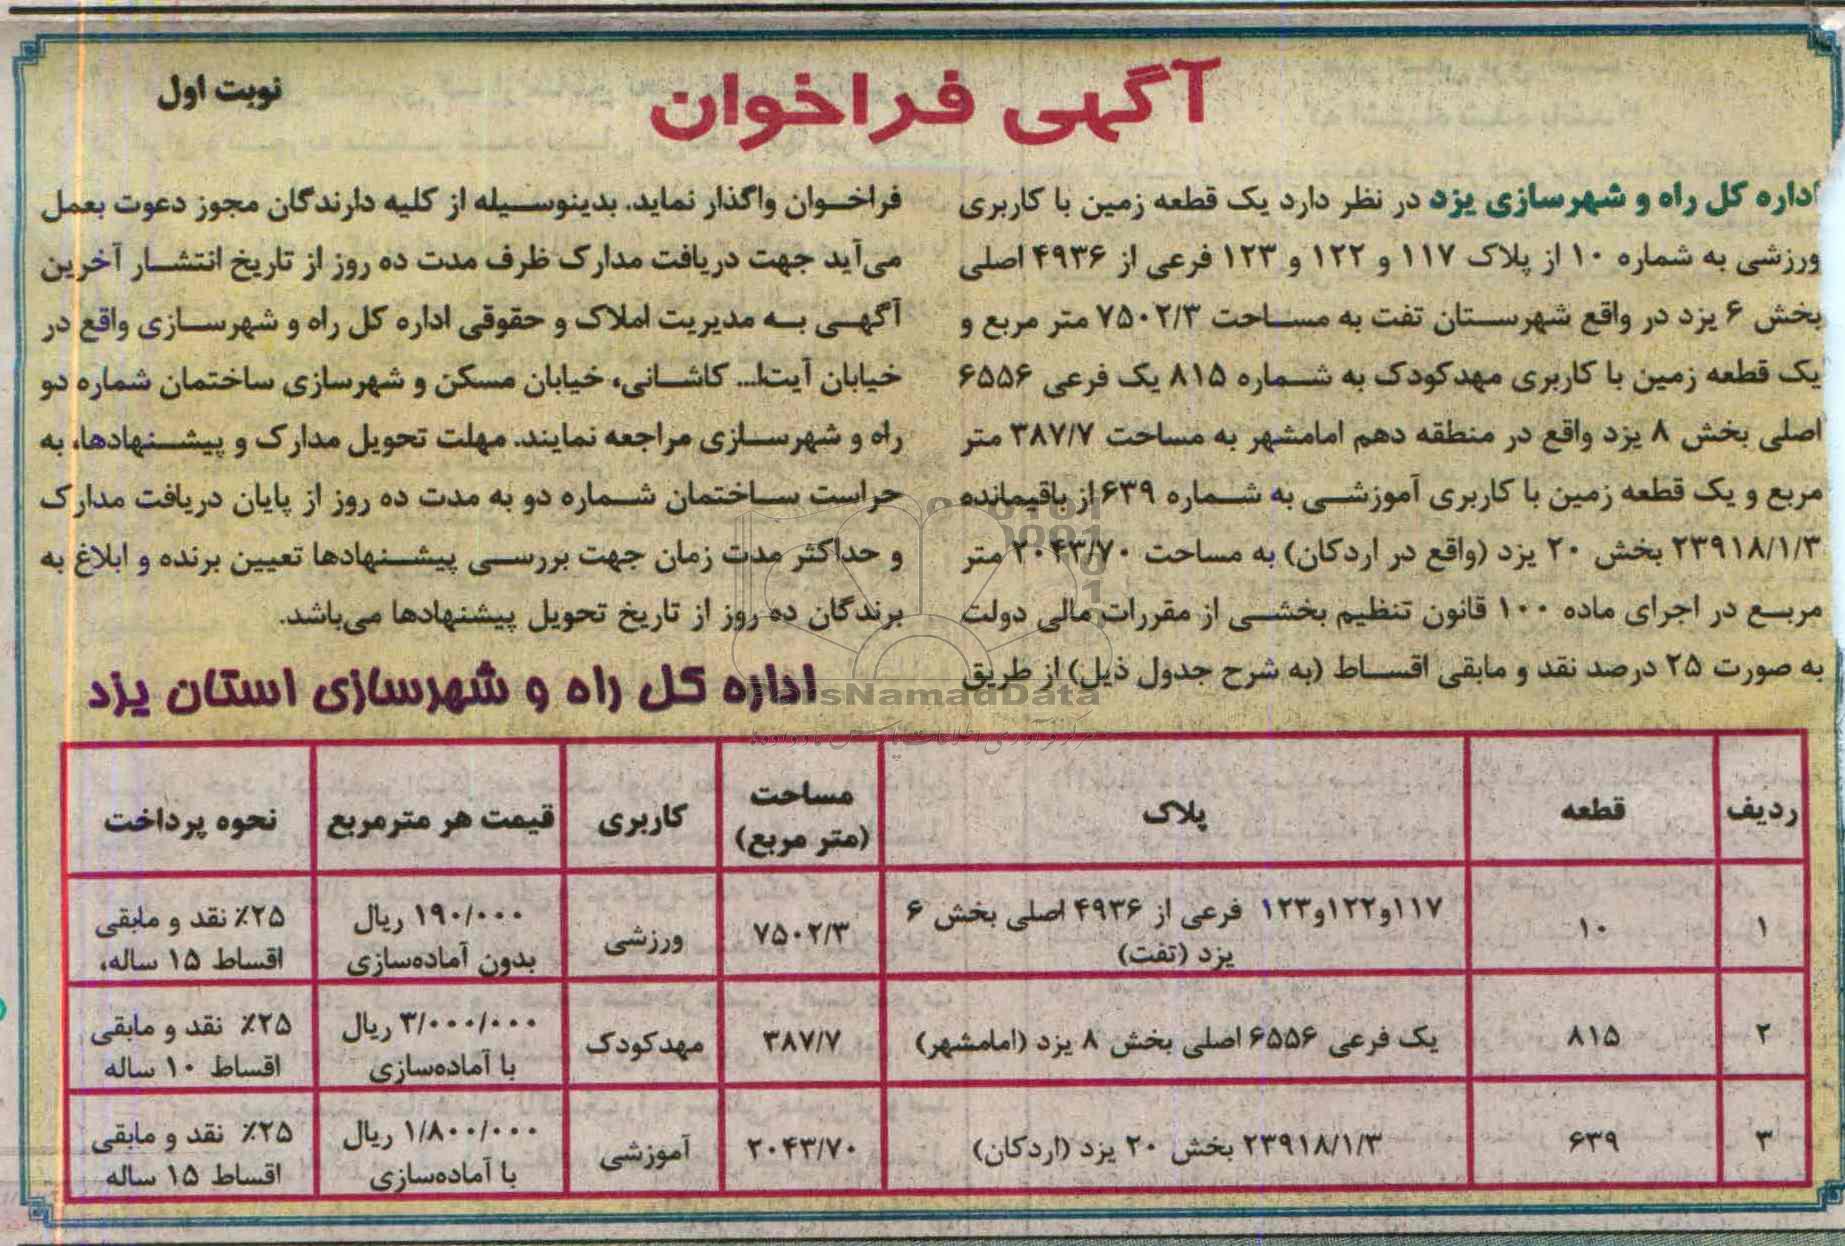 آگهی فراخوان
نوبت اول
اداره کل راه و شهرسازی یزد در نظر دارد یک قطعه زمین با کاربری
ورزشی به شماره ۱۰ از پلاک ۱۱۷ و ۱۲۲ و ۱۲۳ فرعی از ۴۹۳۶ اصلی
بخش ۶ یزد در واقع شهرستان تفت به مساحت ۷۵۰۲/۳ متر مربع و
یک قطعه زمین با کاربری مهدکودک به شماره ۸۱۵ یک فرعی ۶۵۵۶
اصلی بخش ۸ یزد واقع در منطقه دهم امامشهر به مساحت ۳۸۷/۷ متر
مربع و یک قطعه زمین با کاربری آموزشی به شماره ۶۳۹ از باقیمانده
۲۳۹۱۸/۱/۳ بخش ۲۰ یزد (واقع در اردکان) به مساحت ۲۰۴۳/۷۰ متر
مربع در اجرای ماده ۱۰۰ قانون تنظیم بخشی از مقررات مالی دولت
به صورت ۲۵ درصد نقد و مابقی اقساط (به شرح جدول ذیل) از طریق
فراخوان واگذار نماید. بدینوسیله از کلیه دارندگان مجوز دعوت بعمل
می‌آید جهت دریافت مدارک ظرف مدت ده روز از تاریخ انتشار آخرین
آگهی به مدیریت املاک و حقوقی اداره کل راه و شهرسازی واقع در
خیابان آیت‌ا... کاشانی، خیابان مسکن و شهرسازی ساختمان شماره دو
راه و شهرسازی مراجعه نمایند. مهلت تحویل مدارک و پیشنهادها، به
حراست ساختمان شماره دو به مدت ده روز از پایان دریافت مدارک
و حداکثر مدت زمان جهت بررسی پیشنهادها تعیین برنده و ابلاغ به
برندگان ده روز از تاریخ تحویل پیشنهادها می‌باشد.
اداره کل راه و شهرسازی استان یزد
ParsNamadData
ردیف قطعه پلاک مساحت (متر مربع) کاربری قیمت هر مترمربع نحوه پرداخت
۱ ۱۰ ۱۱۷و۱۲۲و۱۲۳ فرعی از ۴۹۳۶ اصلی بخش ۶ یزد (تفت) ۷۵۰۲/۳ ورزشی ۱۹۰/۰۰۰ ریال بدون آماده‌سازی ۲۵٪ نقد و مابقی اقساط ۱۵ ساله،
۲ ۸۱۵ یک فرعی ۶۵۵۶ اصلی بخش ۸ یزد (امامشهر) ۳۸۷/۷ مهدکودک ۳/۰۰۰/۰۰۰ ریال با آماده‌سازی ۲۵٪ نقد و مابقی اقساط ۱۰ ساله
۳ ۶۳۹ ۲۳۹۱۸/۱/۳ بخش ۲۰ یزد (اردکان) ۲۰۴۳/۷۰ آموزشی ۱/۸۰۰/۰۰۰ ریال با آماده‌سازی ۲۵٪ نقد و مابقی اقساط ۱۵ ساله